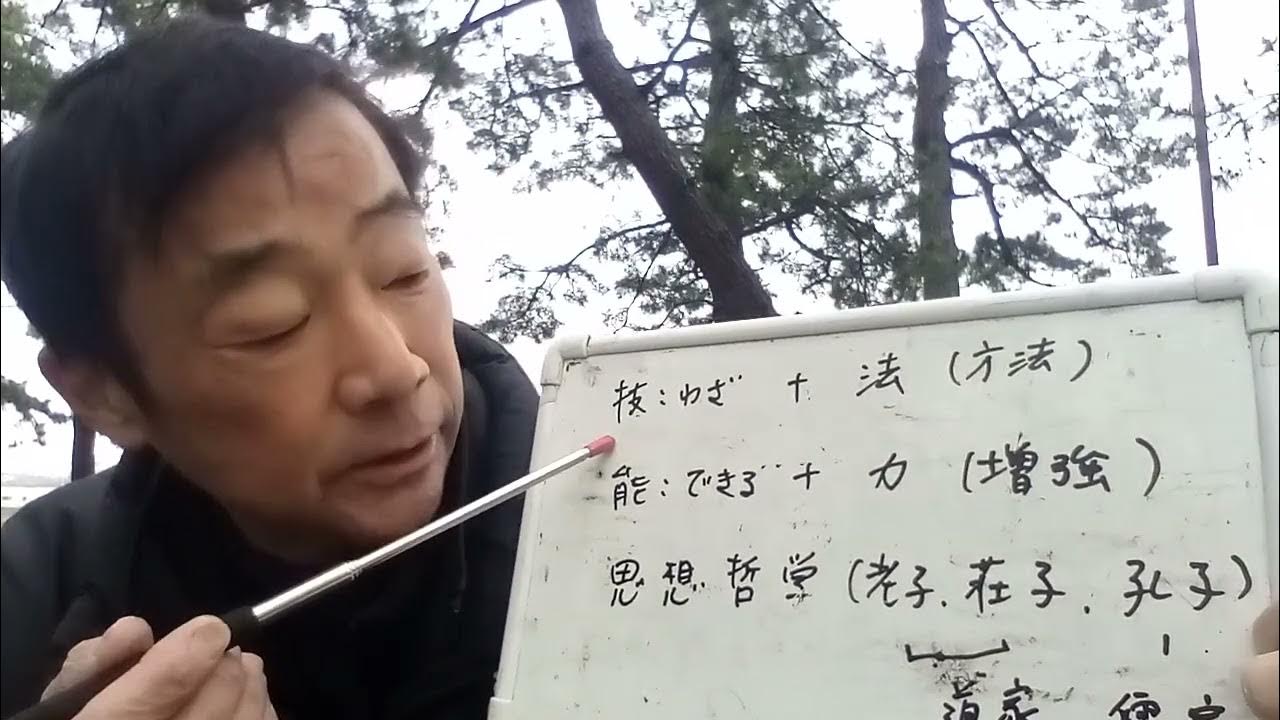 技:わざ + 法 (方法)
能:できる + 力 (増強)
思想哲学(老子、荘子、孔子)
道家 儒家